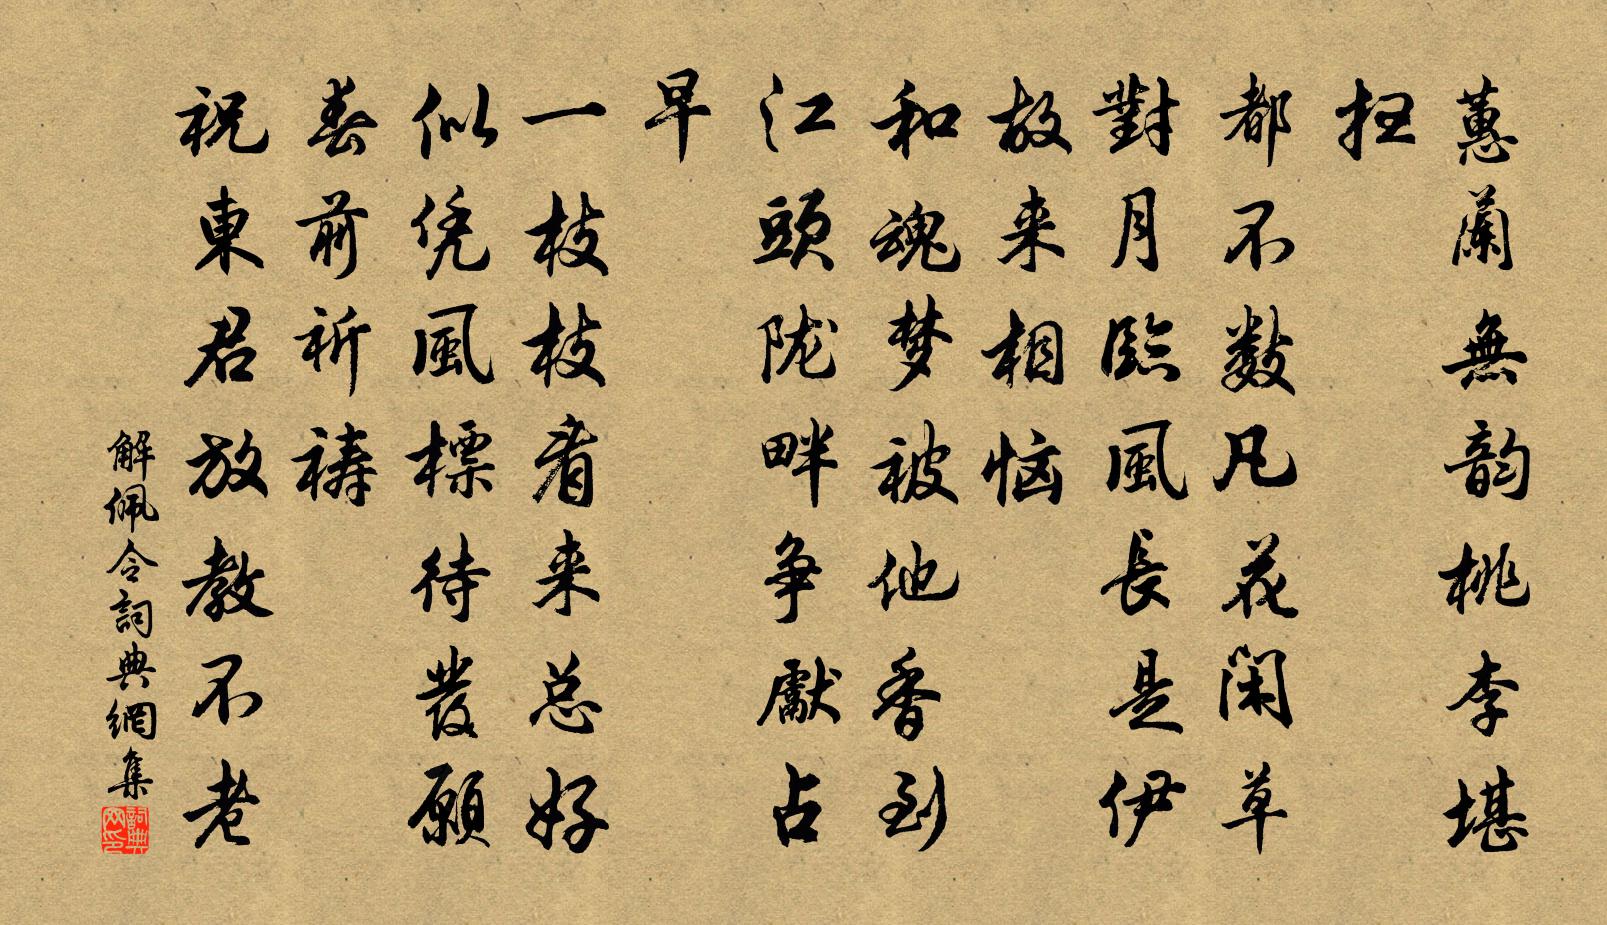 蕙蘭無韵桃李堪
扭
都不数凡花閑草
對月臨風長是伊
故来相恼
和魂梦被他香到
江頭陇畔争獻占
早
一枝枝看来总好
似凭風標待發願
春前祈祷
祝東君放教不老
解佩令詞典網集
詞典網印